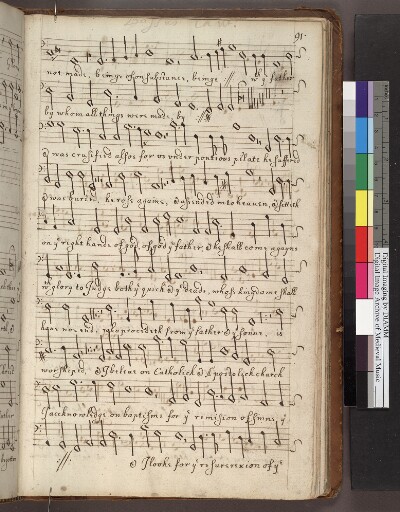 91
not made, beinge of on substance, beinge :// wt ye father
by whom all things were made, by ://
& was crusified allso for vs vnder pontious pilate he suffered
& was buried, he rose againe, & assended into heauen, & sitteth
on ye right hande of god of god ye father, & he shall come agayne
wt glory to Judge both ye quick & ye deade, whose kingdome shall
haue noe end, who proceedeth from ye father & ye sonne, is
worshiped, & I beleue on Catholick & Apostolick church
I acknowledge on baptisme for ye remission of sinns, ye
:// & I looke for ye resurrexion of ye
Digital Imaging by DIAMM
Digital Image Archive of Medieval Music